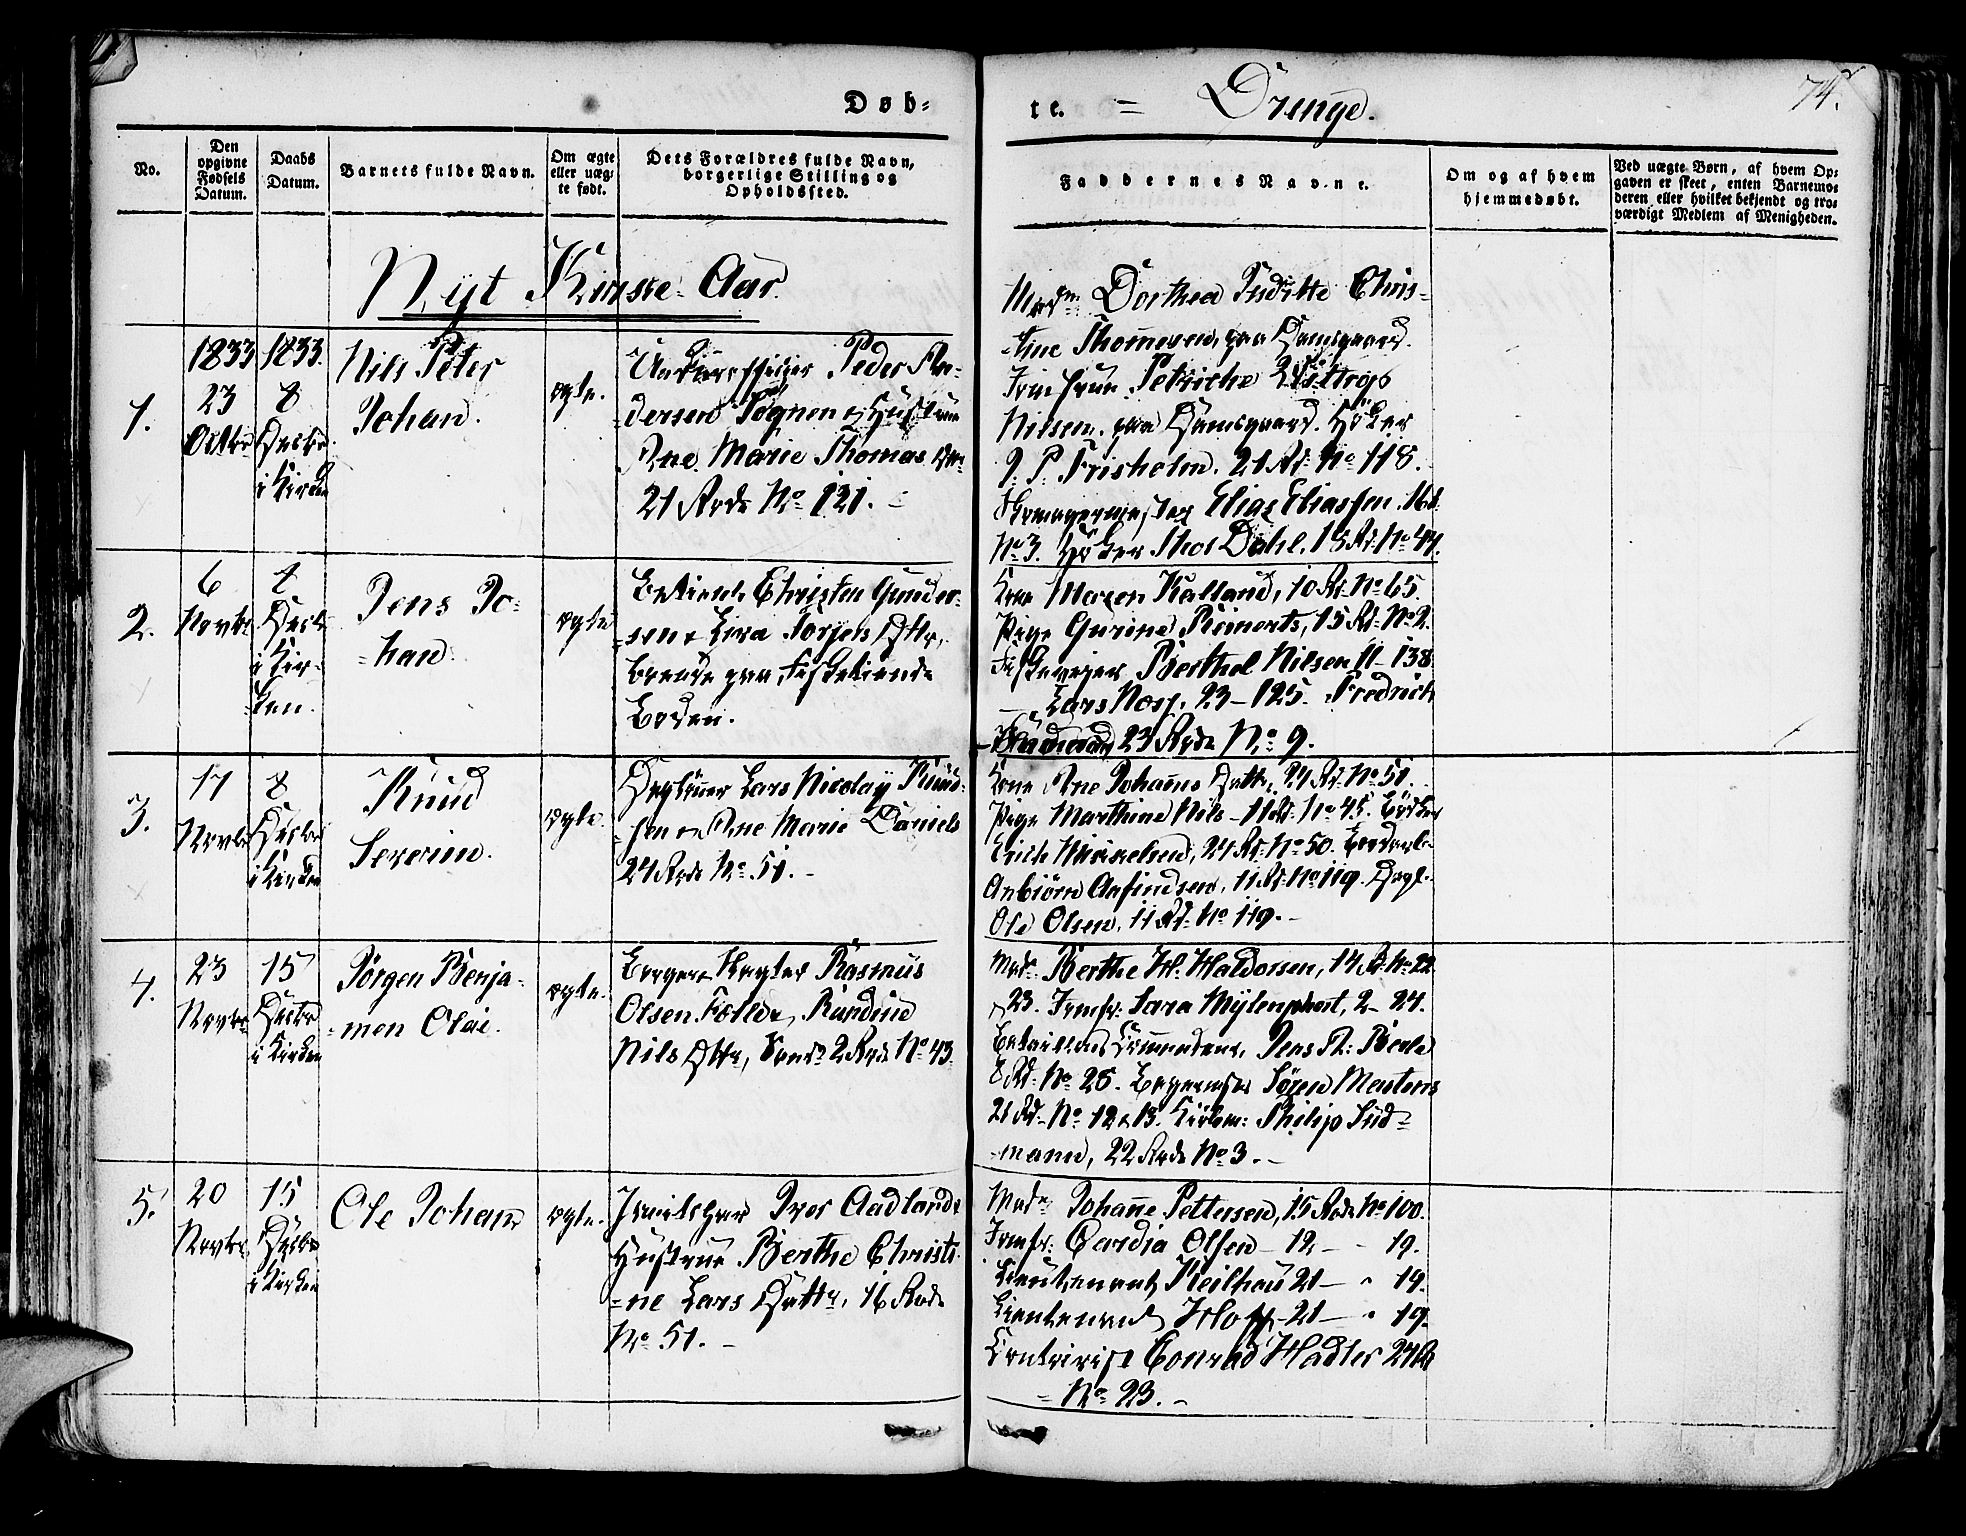 Døb-
te. = Drenge.
74.
No.
Den opgivne Fødsels Datum.
Daabs Datum.
Barnets fulde Navn.
Om ægte eller uægte født.
Dets Forældres fulde Navn, borgerlige Stilling og Opholdssted.
Faddernes Navne.
Om og af hvem hjemmedøbt.
Ved uægte Børn, af hvem Opgaven er skeet, enten Barnemoderen eller hvilket bekjendt og troværdigt Medlem af Menigheden.
Nyt Kirke-Aar.
1.
1833
23
Octbr
1833.
8
Decbr.
i Kirken
Nils Peter
Johan.
ægte.
Underofficier Peder An-
dersen Hustrue
Ane Marie Thomas Dtr
21 Rode No 121. -
Madm Dorthea
Christine Thomesen, paa Damsgaard.
Jomfrue Petriche
Nilsen, paa Damsgaard. Höker
J. P. Frisholm. 21 Rd. No 118.
Elias Eliassen 16 d.
No 3. Höker Thos Dahl, 18 Rd. No 47.
2.
6
Novbr
8
Decbr
i Kir-
ken.
Jens Jo-
han.
ægte
Christen Gunder-
sen & Torjen Dttr,
boende paa
Boden.
Kone Maren Kalland, 10 Rd. No 65.
Pige Gurine Reinerts, 15 Rd. No 2.
Berthel Nilsen 11 - 138
Lars 23 - 125. Fredrich
23 Rode No 9.
3.
17
Novbr
8
Decbr
i Kirken
Knud
Severin.
ægte.
Lars Nicolay Knud-
sen & Ane Marie Daniels
24 Rode No 51. -
Kone Ane Johanns Datter, 24 Rd. No 51.
Pige Marthine Nils - 11 Rd. No 45. Bödker
Erich Mikkelsen, 24 Rd. No 50.
Anbiörn Anfindsen, 11 Rd. No 119. Dagl.
Ole Olsen, 11 Rd. No 119. -
4.
23
Novbr
15
Decbr
i Kirken
Jörgen Benja-
-men Olai.
ægte.
Borger Rasmus
Olsen Randine
Nils Dttr, 2 Rode No 43.
Made Berthe H. Haldorsen, 14 Rd. No 22
& 23. Jomfr. Sara Mylenphort, 2 - 24.
Jens R. Berle
8 Rd. No 25. Sören Mertens
21 Rd. No 12 & 13. Philip Sud-
-mann, 22 Rode No 3. -
5.
20
Novbr
15
Decbr
i Kirken
Ole Johan
ægte.
Iver Aadland &
Hustrue Berthe Christi-
-ne Lars Datter, 16 Rode
No 51. -
Made Johanne Pettersen, 15 Rode No 100.
Jomfr. Cardia Olsen - 12 - - 19.
Lieutenant Keilhau 21 - " 19.
Lieutenant Hoff 21 - " 19.
Conrad Hadler 24 R
= No 23. -